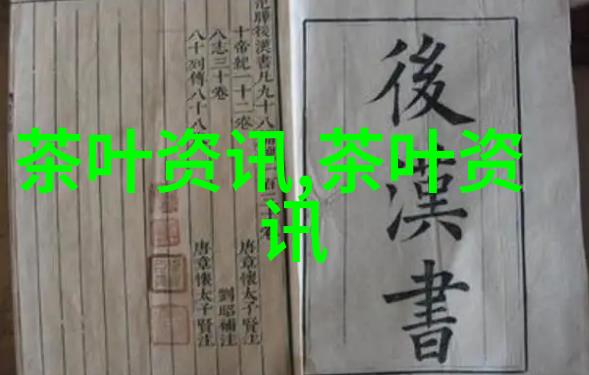 後漢書
范曄後漢書凡九十八
十帝紀一十二卷
八志三十卷
八十列傳八十八
唐章懷太子賢注
劉昭補注
唐章懷太子賢注
茶叶资讯,茶叶资
讯